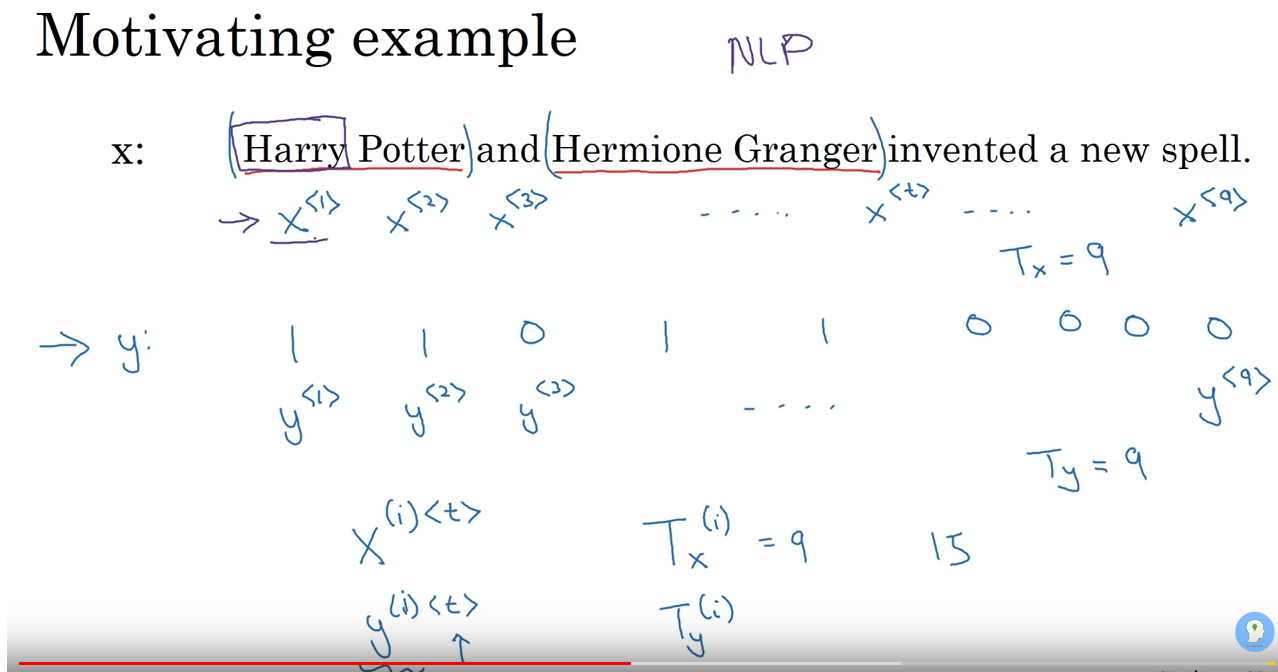 Motivating example NLP
x: (Harry Potter) and (Hermione Granger) invented a new spell.
→ x^<1> x^<2> x^<3> - - - - - x^<t> - - - - x^<9>
T_x = 9
→ y: 1 1 0 1 1 0 0 0 0
y^<1> y^<2> y^<3> - - - - y^<9>
T_y = 9
x^(i)<t> T_x^(i) = 9 15
y^(i)<t> T_y^(i)
↑